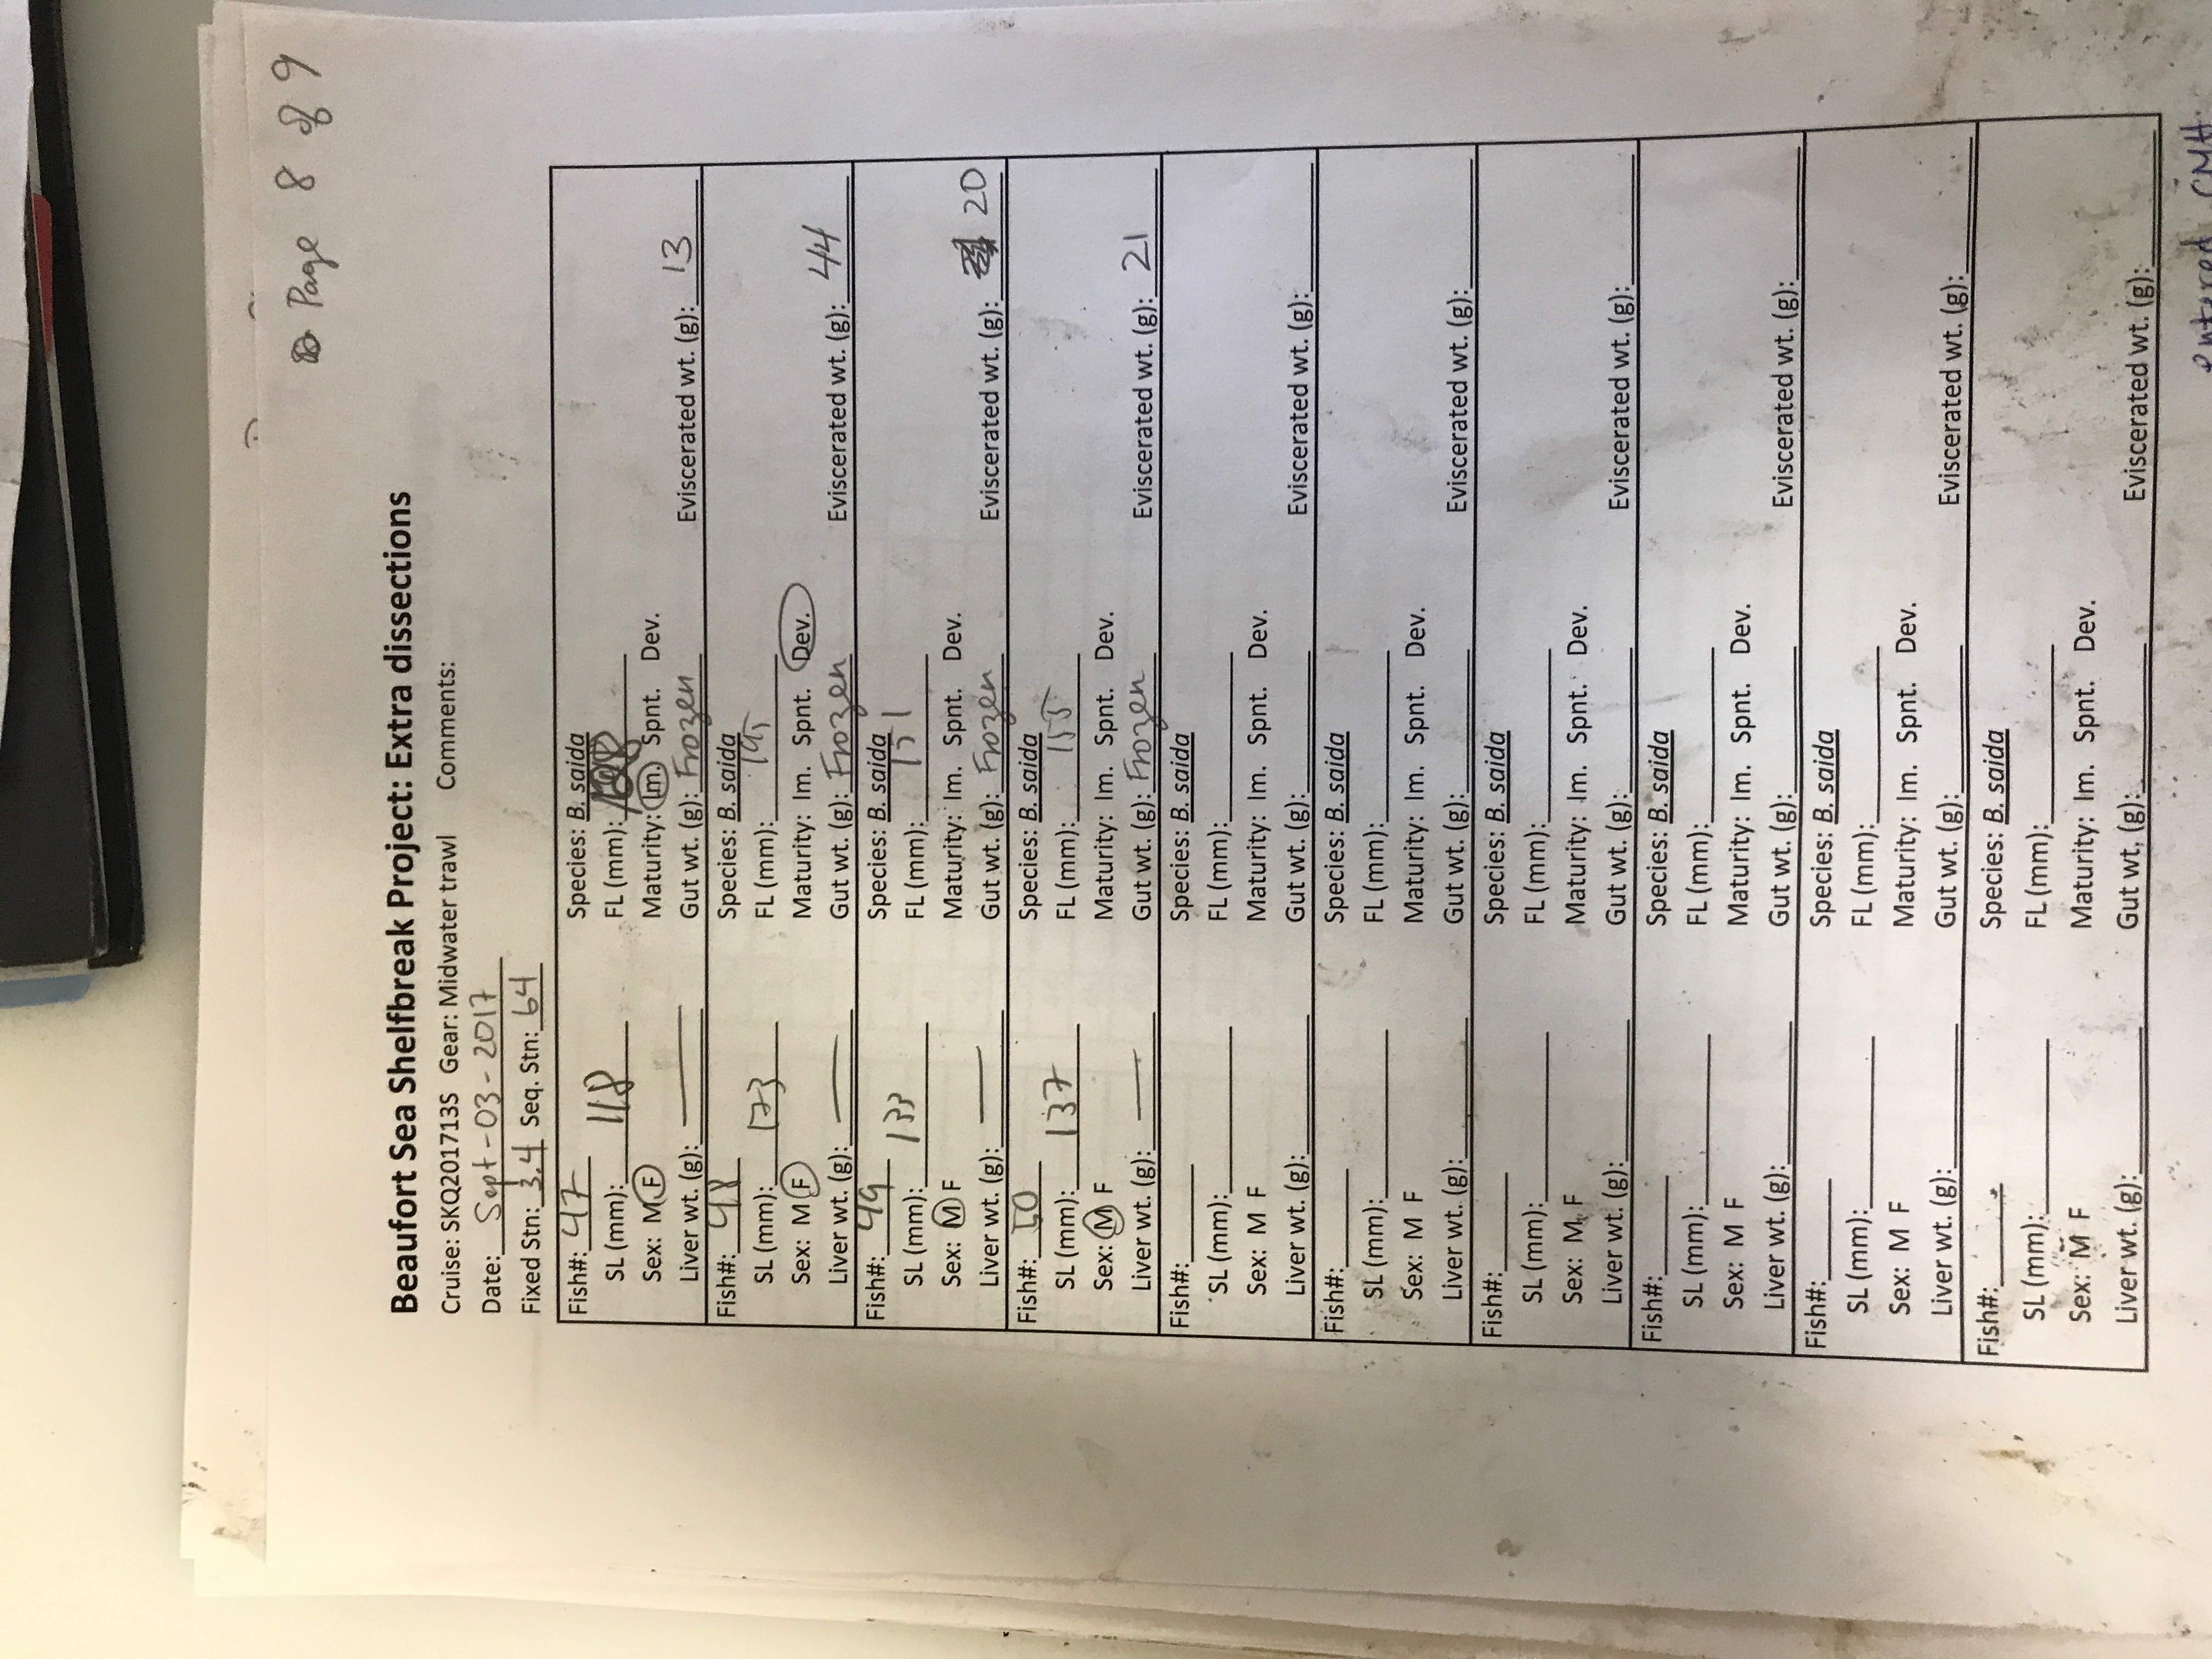 Page 8 of 9
Beaufort Sea Shelfbreak Project: Extra dissections
Cruise: SKQ201713S Gear: Midwater trawl Comments:
Date: Sept-03-2017
Fixed Stn: 3.4 Seq. Stn: 64
Fish#: 47 Species: B. saida
SL (mm): 118 FL (mm):
Sex: M F Maturity: Im. Spnt. Dev.
Liver wt. (g): — Gut wt. (g): Frozen Eviscerated wt. (g): 13
Fish#: 48 Species: B. saida
SL (mm): 173 FL (mm): 195
Sex: M F Maturity: Im. Spnt. Dev.
Liver wt. (g): — Gut wt. (g): Frozen Eviscerated wt. (g): 44
Fish#: 49 Species: B. saida
SL (mm): 133 FL (mm): 151
Sex: M F Maturity: Im. Spnt. Dev.
Liver wt. (g): — Gut wt. (g): Frozen Eviscerated wt. (g): 20
Fish#: 50 Species: B. saida
SL (mm): 137 FL (mm): 155
Sex: M F Maturity: Im. Spnt. Dev.
Liver wt. (g): — Gut wt. (g): Frozen Eviscerated wt. (g): 21
Fish#: Species: B. saida
SL (mm): FL (mm):
Sex: M F Maturity: Im. Spnt. Dev.
Liver wt. (g): Gut wt. (g): Eviscerated wt. (g):
Fish#: Species: B. saida
SL (mm): FL (mm):
Sex: M F Maturity: Im. Spnt. Dev.
Liver wt. (g): Gut wt. (g): Eviscerated wt. (g):
Fish#: Species: B. saida
SL (mm): FL (mm):
Sex: M F Maturity: Im. Spnt. Dev.
Liver wt. (g): Gut wt. (g): Eviscerated wt. (g):
Fish#: Species: B. saida
SL (mm): FL (mm):
Sex: M F Maturity: Im. Spnt. Dev.
Liver wt. (g): Gut wt. (g): Eviscerated wt. (g):
Fish#: Species: B. saida
SL (mm): FL (mm):
Sex: M F Maturity: Im. Spnt. Dev.
Liver wt. (g): Gut wt. (g): Eviscerated wt. (g):
Fish#: Species: B. saida
SL (mm): FL (mm):
Sex: M F Maturity: Im. Spnt. Dev.
Liver wt. (g): Gut wt. (g): Eviscerated wt. (g):
entered CMH